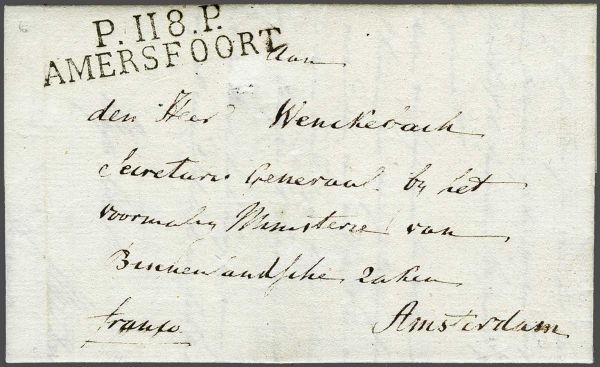 P.118.P.
AMERSFOORT
Aan
den Heer Wenckebach
Secretaris Generaal by het
voormalig Ministerie van
Binnenlandsche zaken
franco Amsterdam